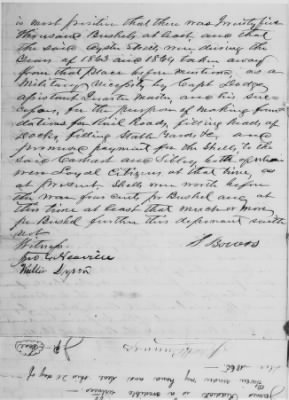 is most positive that there was Twenty five
thousand Bushels at least, and that
the said Oyster Shells were during the
Years of 1863 and 1864 taken away
from that place before mentioned, as a
Military Necessity by Capt
assistant Quarter Master and his suc-
cessors for the purpose of making foun-
dations for Rail Roads, filling heads of
docks, filling Stable Yards &c, and
promised payment for the Shells to the
said and Sibley both of whom
were Loyal Citizens at that time, as
at present. Shells were worth before
the War four cents pr Bushel and at
this time at least that much or more
pr Bushel further this deponent saith
not
Witness S Bowers
Jno
Willie Dyson
James is a credible
witness.
Given under my hand and seal this 21 day of
1865